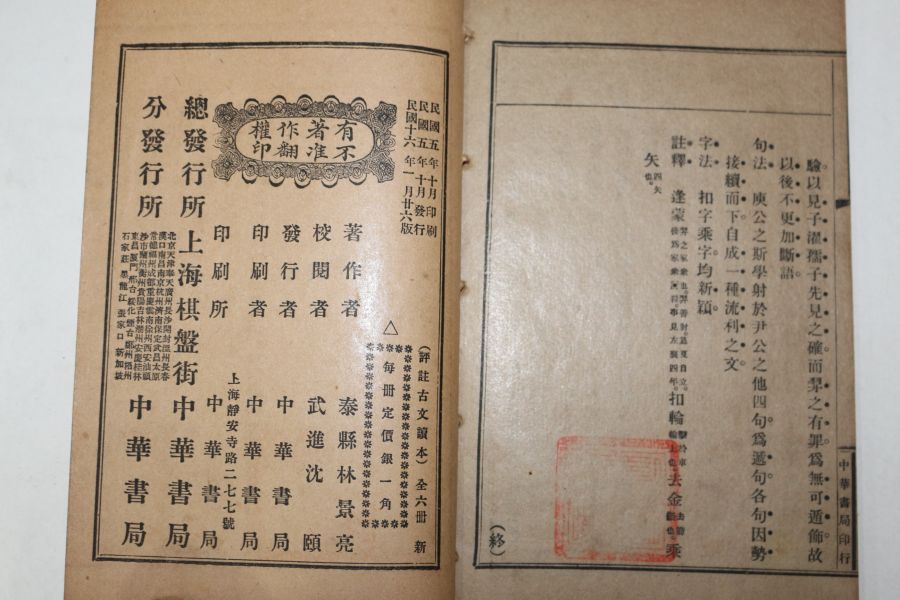 驗以見子濯孺子先見之確而羿之有罪爲無可遁飾故
以後不更加斷語
句法　庾公之斯學射於尹公之他四句爲遞句各句因勢
接續而下自成一種流利之文
字法　扣字乘字均新穎
註釋　逢蒙
扣輪
去金
乘
矢四矢也。
中華書局印行
(終)
民國五年十月印刷
民國五年十月發行
民國十六年一月廿六版
有著作權
不准翻印
(評註古文讀本)全六冊　新
△每冊定價銀一角
著作者　泰縣林景亮
校閱者　武進沈頤
發行者　中華書局
印刷者　中華書局
印刷所　上海靜安寺路二七七號　中華書局
總發行所　上海棋盤街　中華書局
分發行所
北京天津奉天廣州長沙開封溫州長春
漢口南昌南京杭州濟南保定武昌太原
常德福州成都重慶雲南徐州西安汕頭
沙市蘭州衡州貴陽吉林潮州安慶桂林
石家莊　黑龍江　張家口　新加坡
中華書局